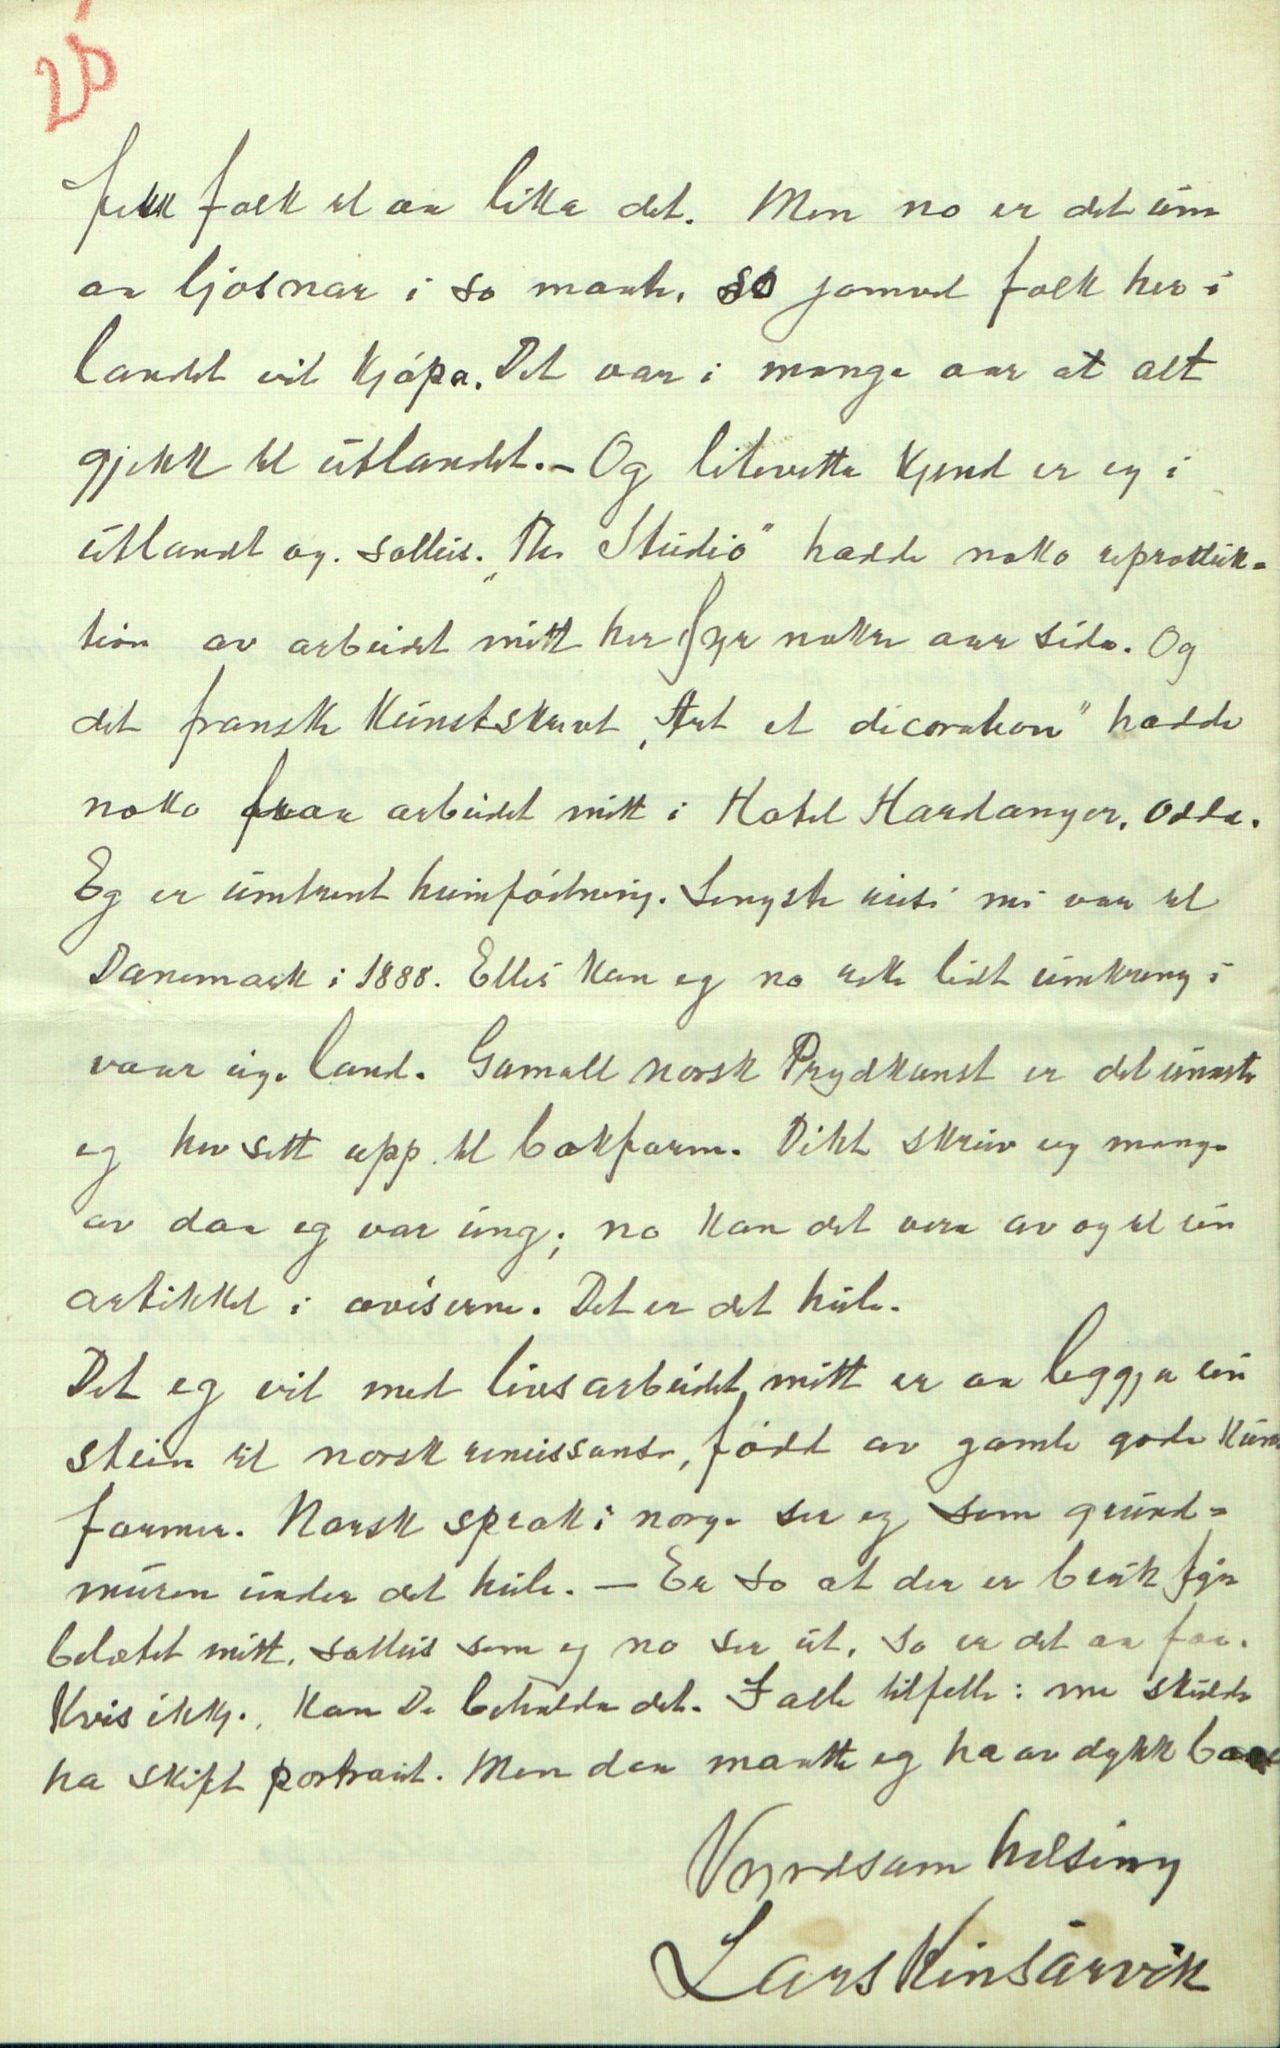 fekk folk til aa lika det. Men no er det um
aa ljosnar i so maate, so jamvel folk her i
landet vil kjøpa. Det var i mange aar at alt
gjekk til utlandet. – Og litevetta kjend er eg i
utlandet og. soleis. "The Studio" hadde noko reproduk-
tion av arbeidet mitt her fyr nokre aar sida. Og
det franske kunstskrivt "Art et decoration" hadde
noko fraa arbeidet mitt i Hotel Hardanger, Odda.
Eg er umtrent heimfødning. Lengste reisi mi var til
Danemark i 1888. Elles kan eg no ikke lidt umkring i
vaar eige land. Gamall norsk Prydkunst er det einaste
eg hev sett upp til bokform. Dikt skreiv eg mange
av daa eg var ung; no kan det vera av og til ein
artikkel i aviserne. Det er det heile.
Det eg vil med livsarbeidet mitt er aa leggja ein
stein til norsk reneissanse, født av gamle gode kunst
former. Norsk spraak i norge ser eg som grund-
muren under det heile. – Er so at der er bruk fyr
belætet mitt, soleis som eg no ser ut, so er det aa faa.
Kvis ikkje, kan De behalda det. I alle tilfelle: me skulde
ha skift portrait. Men daa maatte eg ha av dykk baae
Vyrdsam helsing
Lars Kinsarvik